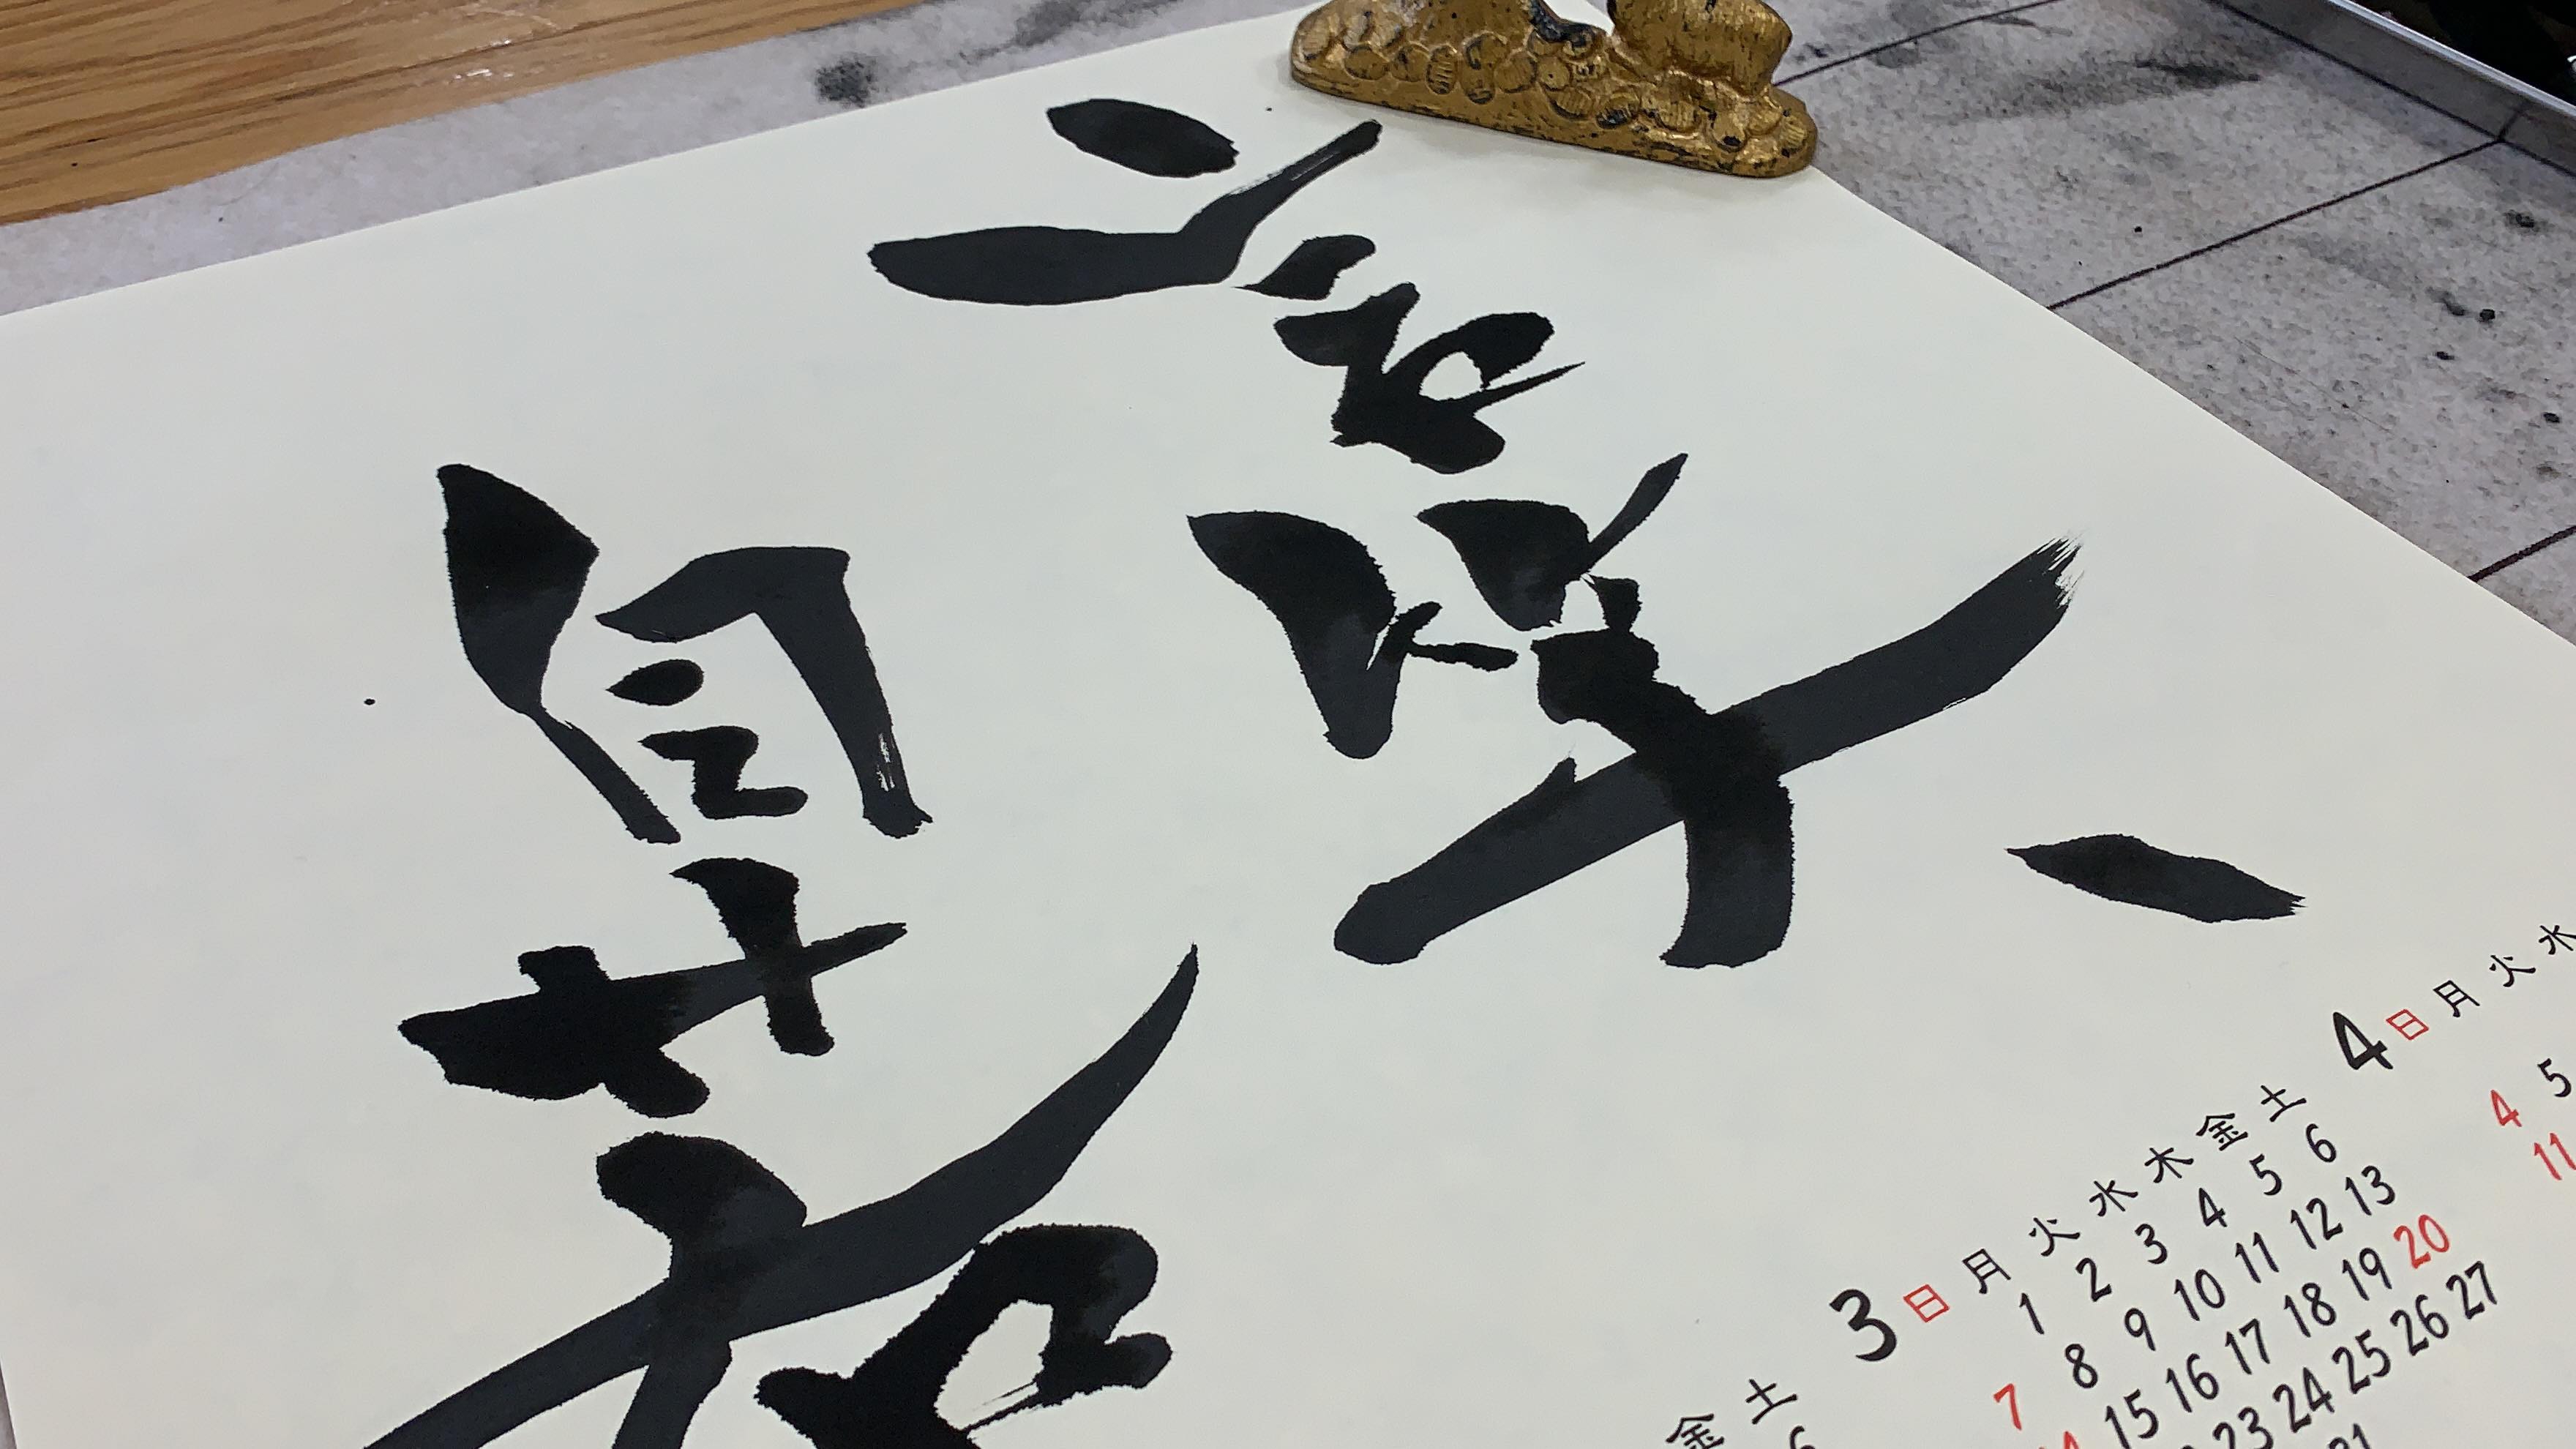 言笑
自若
金 土
6
3 日 月 火 水 木 金 土
1 2 3 4 5 6
7 8 9 10 11 12 13
15 16 17 18 19 20
23 24 25 26 27
31
4 日 月 火 水
4 5
11